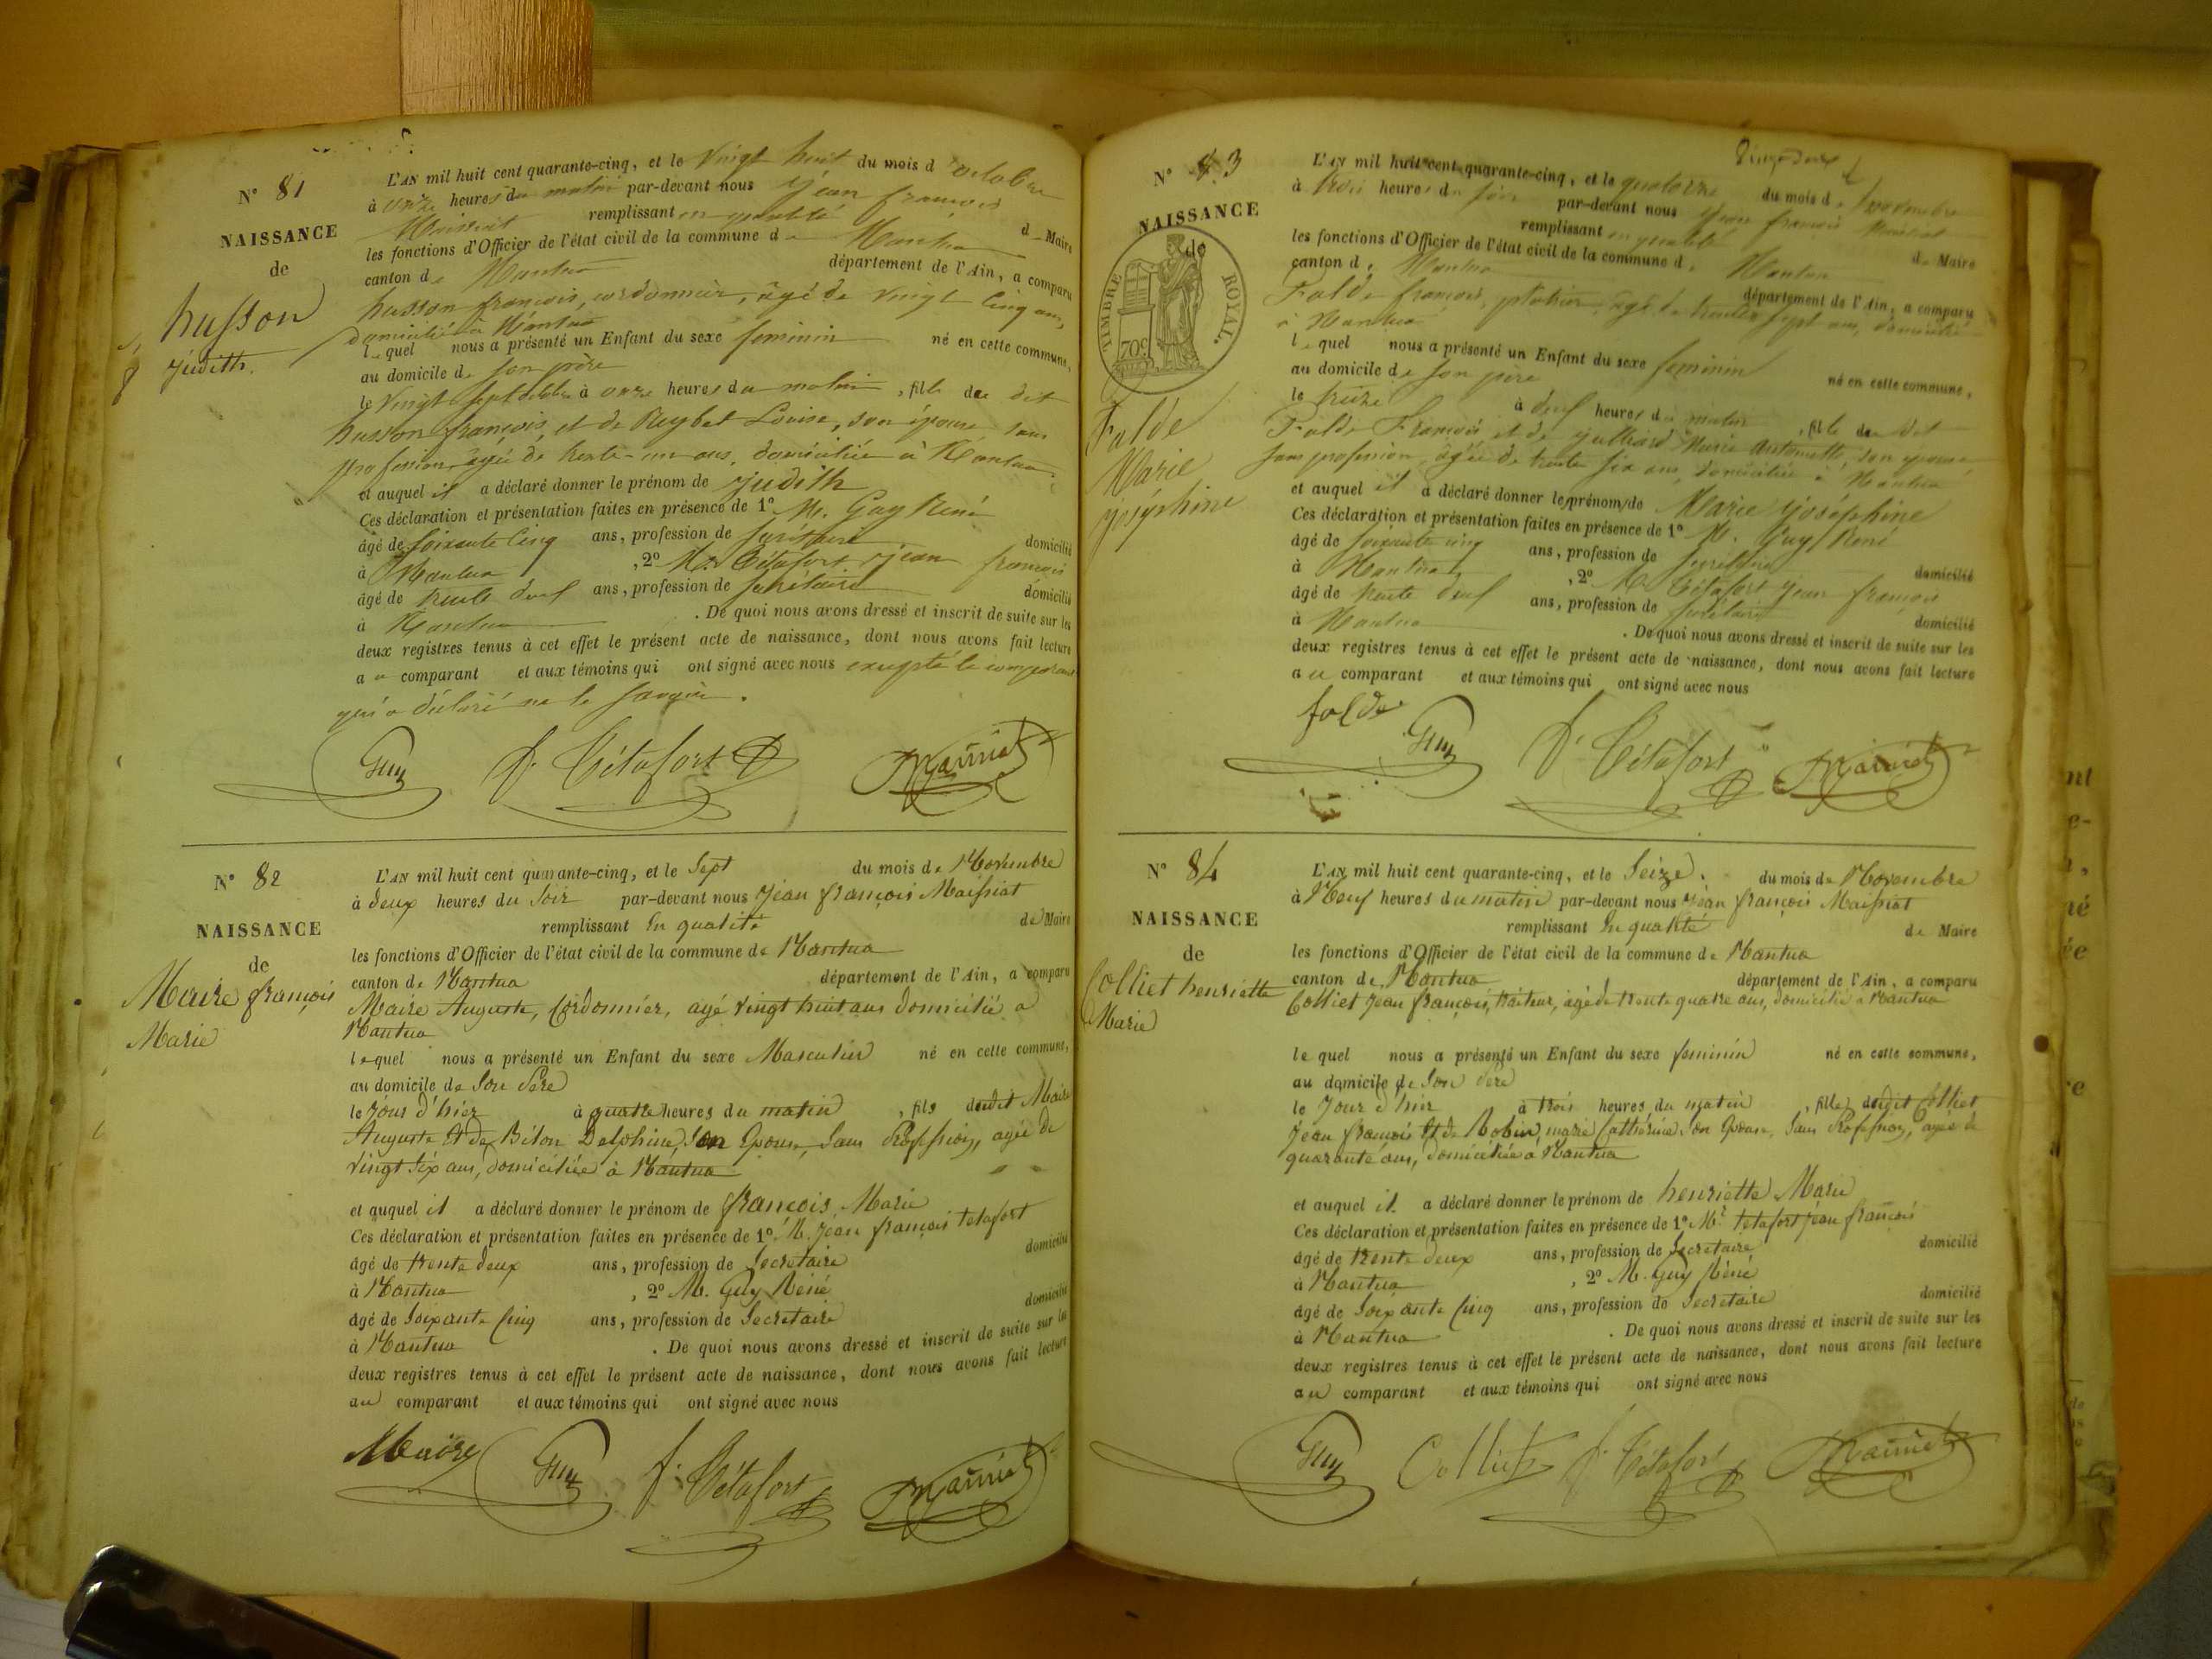 N° 81
NAISSANCE
de
husson
judith.
L'AN mil huit cent quarante-cinq, et le Vingt huit du mois d'octobre
à onze heures du matin par-devant nous Jean françois
Maissiat remplissant en qualité de Maire
les fonctions d'Officier de l'état civil de la commune de Nantua
canton de Nantua département de l'Ain, a comparu
husson françois, cordonnier, âgé de vingt cinq ans,
domicilié à Nantua
lequel nous a présenté un Enfant du sexe feminin né en cette commune,
au domicile de son père
le vingt sept octobre à onze heures du matin, fille du dit
husson françois, et de Reybet Louise, son épouse, sans
profession, âgée de trente-un ans, domiciliée à Nantua.
et auquel il a déclaré donner le prénom de judith
Ces déclaration et présentation faites en présence de 1° M. Guy René
âgé de soixante cinq ans, profession de secrétaire domicilié
à Nantua, 2° M. Tétafort jean françois
âgé de trente deux ans, profession de secrétaire domicilié
à Nantua. De quoi nous avons dressé et inscrit de suite sur les
deux registres tenus à cet effet le présent acte de naissance, dont nous avons fait lecture
au comparant et aux témoins qui ont signé avec nous excepté le comparant
qui a déclaré ne le savoir.
Guy f. Tétafort Maissiat
N° 82
NAISSANCE
de
Maire françois
Marie
L'AN mil huit cent quarante-cinq, et le Sept du mois de Novembre
à deux heures du Soir par-devant nous Jean françois Maissiat
remplissant En qualité de Maire
les fonctions d'Officier de l'état civil de la commune de Nantua
canton de Nantua département de l'Ain, a comparu
Maire Auguste, Cordonnier, agé vingt huit ans domicilié a
Nantua
lequel nous a présenté un Enfant du sexe Masculin né en cette commune,
au domicile de Son Père
le Jour d'hier à quatre heures du matin, fils dudit Maire
Auguste Et de Biton Delphine, Son Epouse, Sans Profession, agée de
vingt Six ans, domiciliée à Nantua
et auquel il a déclaré donner le prénom de françois Marie
Ces déclaration et présentation faites en présence de 1° M. Jean françois tetafort
âgé de trente deux ans, profession de Secretaire domicilié
à Nantua, 2° M. Guy Réné
âgé de Soixante Cinq ans, profession de Secretaire domicilié
à Nantua. De quoi nous avons dressé et inscrit de suite sur les
deux registres tenus à cet effet le présent acte de naissance, dont nous avons fait lecture
au comparant et aux témoins qui ont signé avec nous
Maire Guy f. Tétafort Maissiat
N° 83
NAISSANCE
de
TIMBRE ROYAL.
70c
Falde
Marie
joséphine
L'AN mil huit cent quarante-cinq, et le quatorze du mois de novembre
à trois heures du soir par-devant nous Jean françois Maissiat
remplissant en qualité de Maire
les fonctions d'Officier de l'état civil de la commune de Nantua
canton de Nantua département de l'Ain, a comparu
Falde françois, platrier, âgé de trente sept ans, domicilié
à Nantua
lequel nous a présenté un Enfant du sexe feminin né en cette commune,
au domicile de son père
le treize à deux heures du matin, fille du dit
Falde François et de julliard Marie Antoinette, son épouse
sans profession, âgée de trente six ans, domiciliée à Nantua
et auquel il a déclaré donner les prénom de Marie joséphine
Ces déclaration et présentation faites en présence de 1° M. Guy René
âgé de soixante cinq ans, profession de secrétaire domicilié
à Nantua, 2° M. Tétafort jean françois
âgé de trente deux ans, profession de secrétaire domicilié
à Nantua. De quoi nous avons dressé et inscrit de suite sur les
deux registres tenus à cet effet le présent acte de naissance, dont nous avons fait lecture
au comparant et aux témoins qui ont signé avec nous
falde Guy f. Tétafort Maissiat
N° 84
NAISSANCE
de
Colliet henriette
Marie
L'AN mil huit cent quarante-cinq, et le Seize. du mois de Novembre
à Neuf heures du matin par-devant nous Jean françois Maissiat
remplissant En qualité de Maire
les fonctions d'Officier de l'état civil de la commune de Nantua
canton de Nantua département de l'Ain, a comparu
Colliet Jean françois, traiteur, agé de trente quatre ans, domicilié a Nantua
lequel nous a présenté un Enfant du sexe feminin né en cette commune,
au domicile de Son Pere
le Jour d'hier à trois heures du matin, fille dudit Colliet
Jean françois Et de Robin marie Cathérine Son Epouse, Sans Profession, agée de
quarante ans, domiciliée a Nantua
et auquel il a déclaré donner le prénom de henriette Marie
Ces déclaration et présentation faites en présence de 1° Mr tetafort jean françois
âgé de trente deux ans, profession de Secretaire domicilié
à Nantua, 2° M. Guy Réné
âgé de Soixante Cinq ans, profession de Secretaire domicilié
à Nantua. De quoi nous avons dressé et inscrit de suite sur les
deux registres tenus à cet effet le présent acte de naissance, dont nous avons fait lecture
au comparant et aux témoins qui ont signé avec nous
Guy Colliet f. Tétafort Maissiat